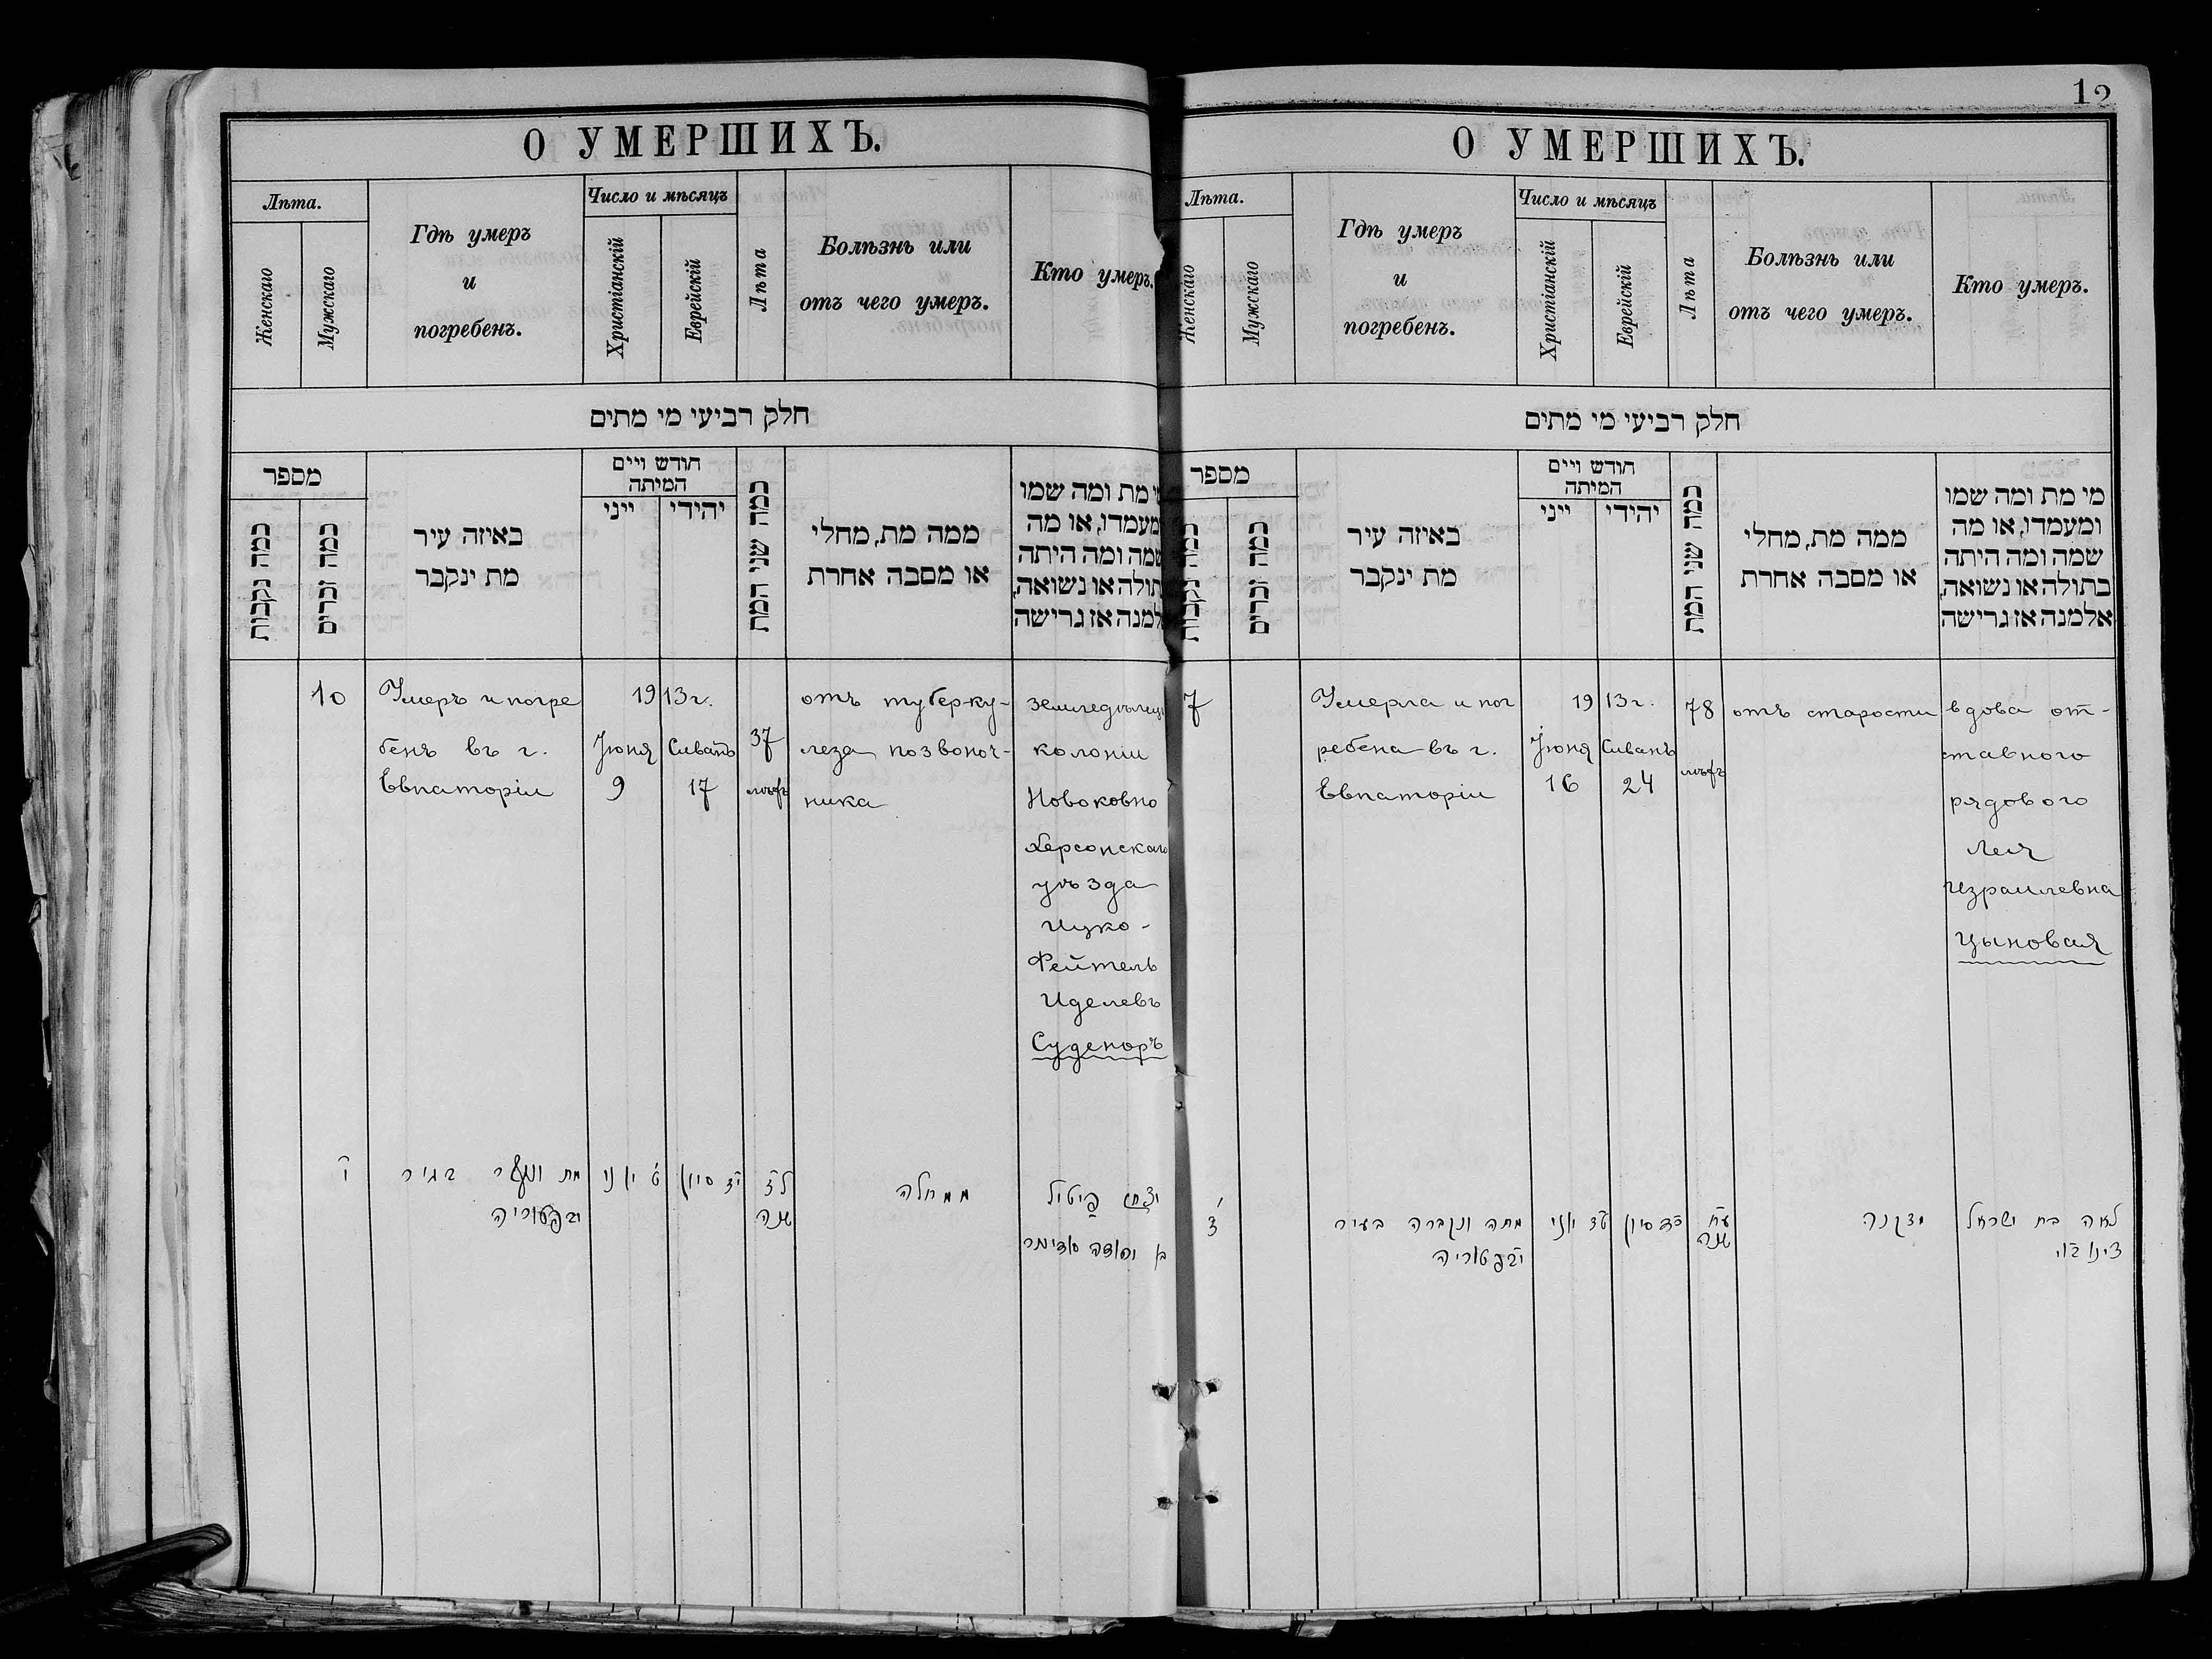 О УМЕРШИХЪ.
Лѣта.
Женскаго
Мужскаго
Гдѣ умеръ
и
погребенъ.
Число и мѣсяцъ
Христіанскій
Еврейскій
Лѣта
Болѣзнь или
отъ чего умеръ.
Кто умеръ.
חלק רביעי מי מתים
מספר
כמה נקבות
כמה זכרים
באיזה עיר
מת ינקבר
חודש ויים
המיתה
ייני
יהידי
כמה שני המת
ממה מת, מחלי
או מסבה אחרת
מת ומה שמו
מעמדו, או מה
שמה ומה היתה
תולה או נשואה,
למנה אז גרישה
10
Умеръ и погре
бенъ въ г.
Евпаторіи
1913г.
Іюня
9
Сиванъ
17
37
лѣтъ
отъ туберку-
леза позвоноч-
ника
земледѣлецъ
колоніи
Новоковно
Херсонскаго
уѣзда
Ицко-
Фейтель
Иделевъ
Суденоръ
י
מת ונקבר בעיר
יבפטוריה
ט יוני
יז סיון
לז
שנה
ממחלה
יצחק פייטיל
בן יהודה
12
О УМЕРШИХЪ.
Лѣта.
Женскаго
Мужскаго
Гдѣ умеръ
и
погребенъ.
Число и мѣсяцъ
Христіанскій
Еврейскій
Лѣта
Болѣзнь или
отъ чего умеръ.
Кто умеръ.
חלק רביעי מי מתים
מספר
כמה נקבות
כמה זכרים
באיזה עיר
מת ינקבר
חודש ויים
המיתה
ייני
יהידי
כמה שני המת
ממה מת, מחלי
או מסבה אחרת
מי מת ומה שמו
ומעמדו, או מה
שמה ומה היתה
בתולה או נשואה,
אלמנה אז גרישה
7
Умерла и пог
ребена въ г.
Евпаторіи
1913г.
Іюня
16
Сиванъ
24
78
лѣтъ
отъ старости
вдова от-
ставного
рядового
Лея
Израилевна
Цыновая
ז
מתה ונקברה בעיר
יבפטוריה
טז יוני
כד סיון
עח
שנה
מזקנה
לאה בת ישראל
צינובוי